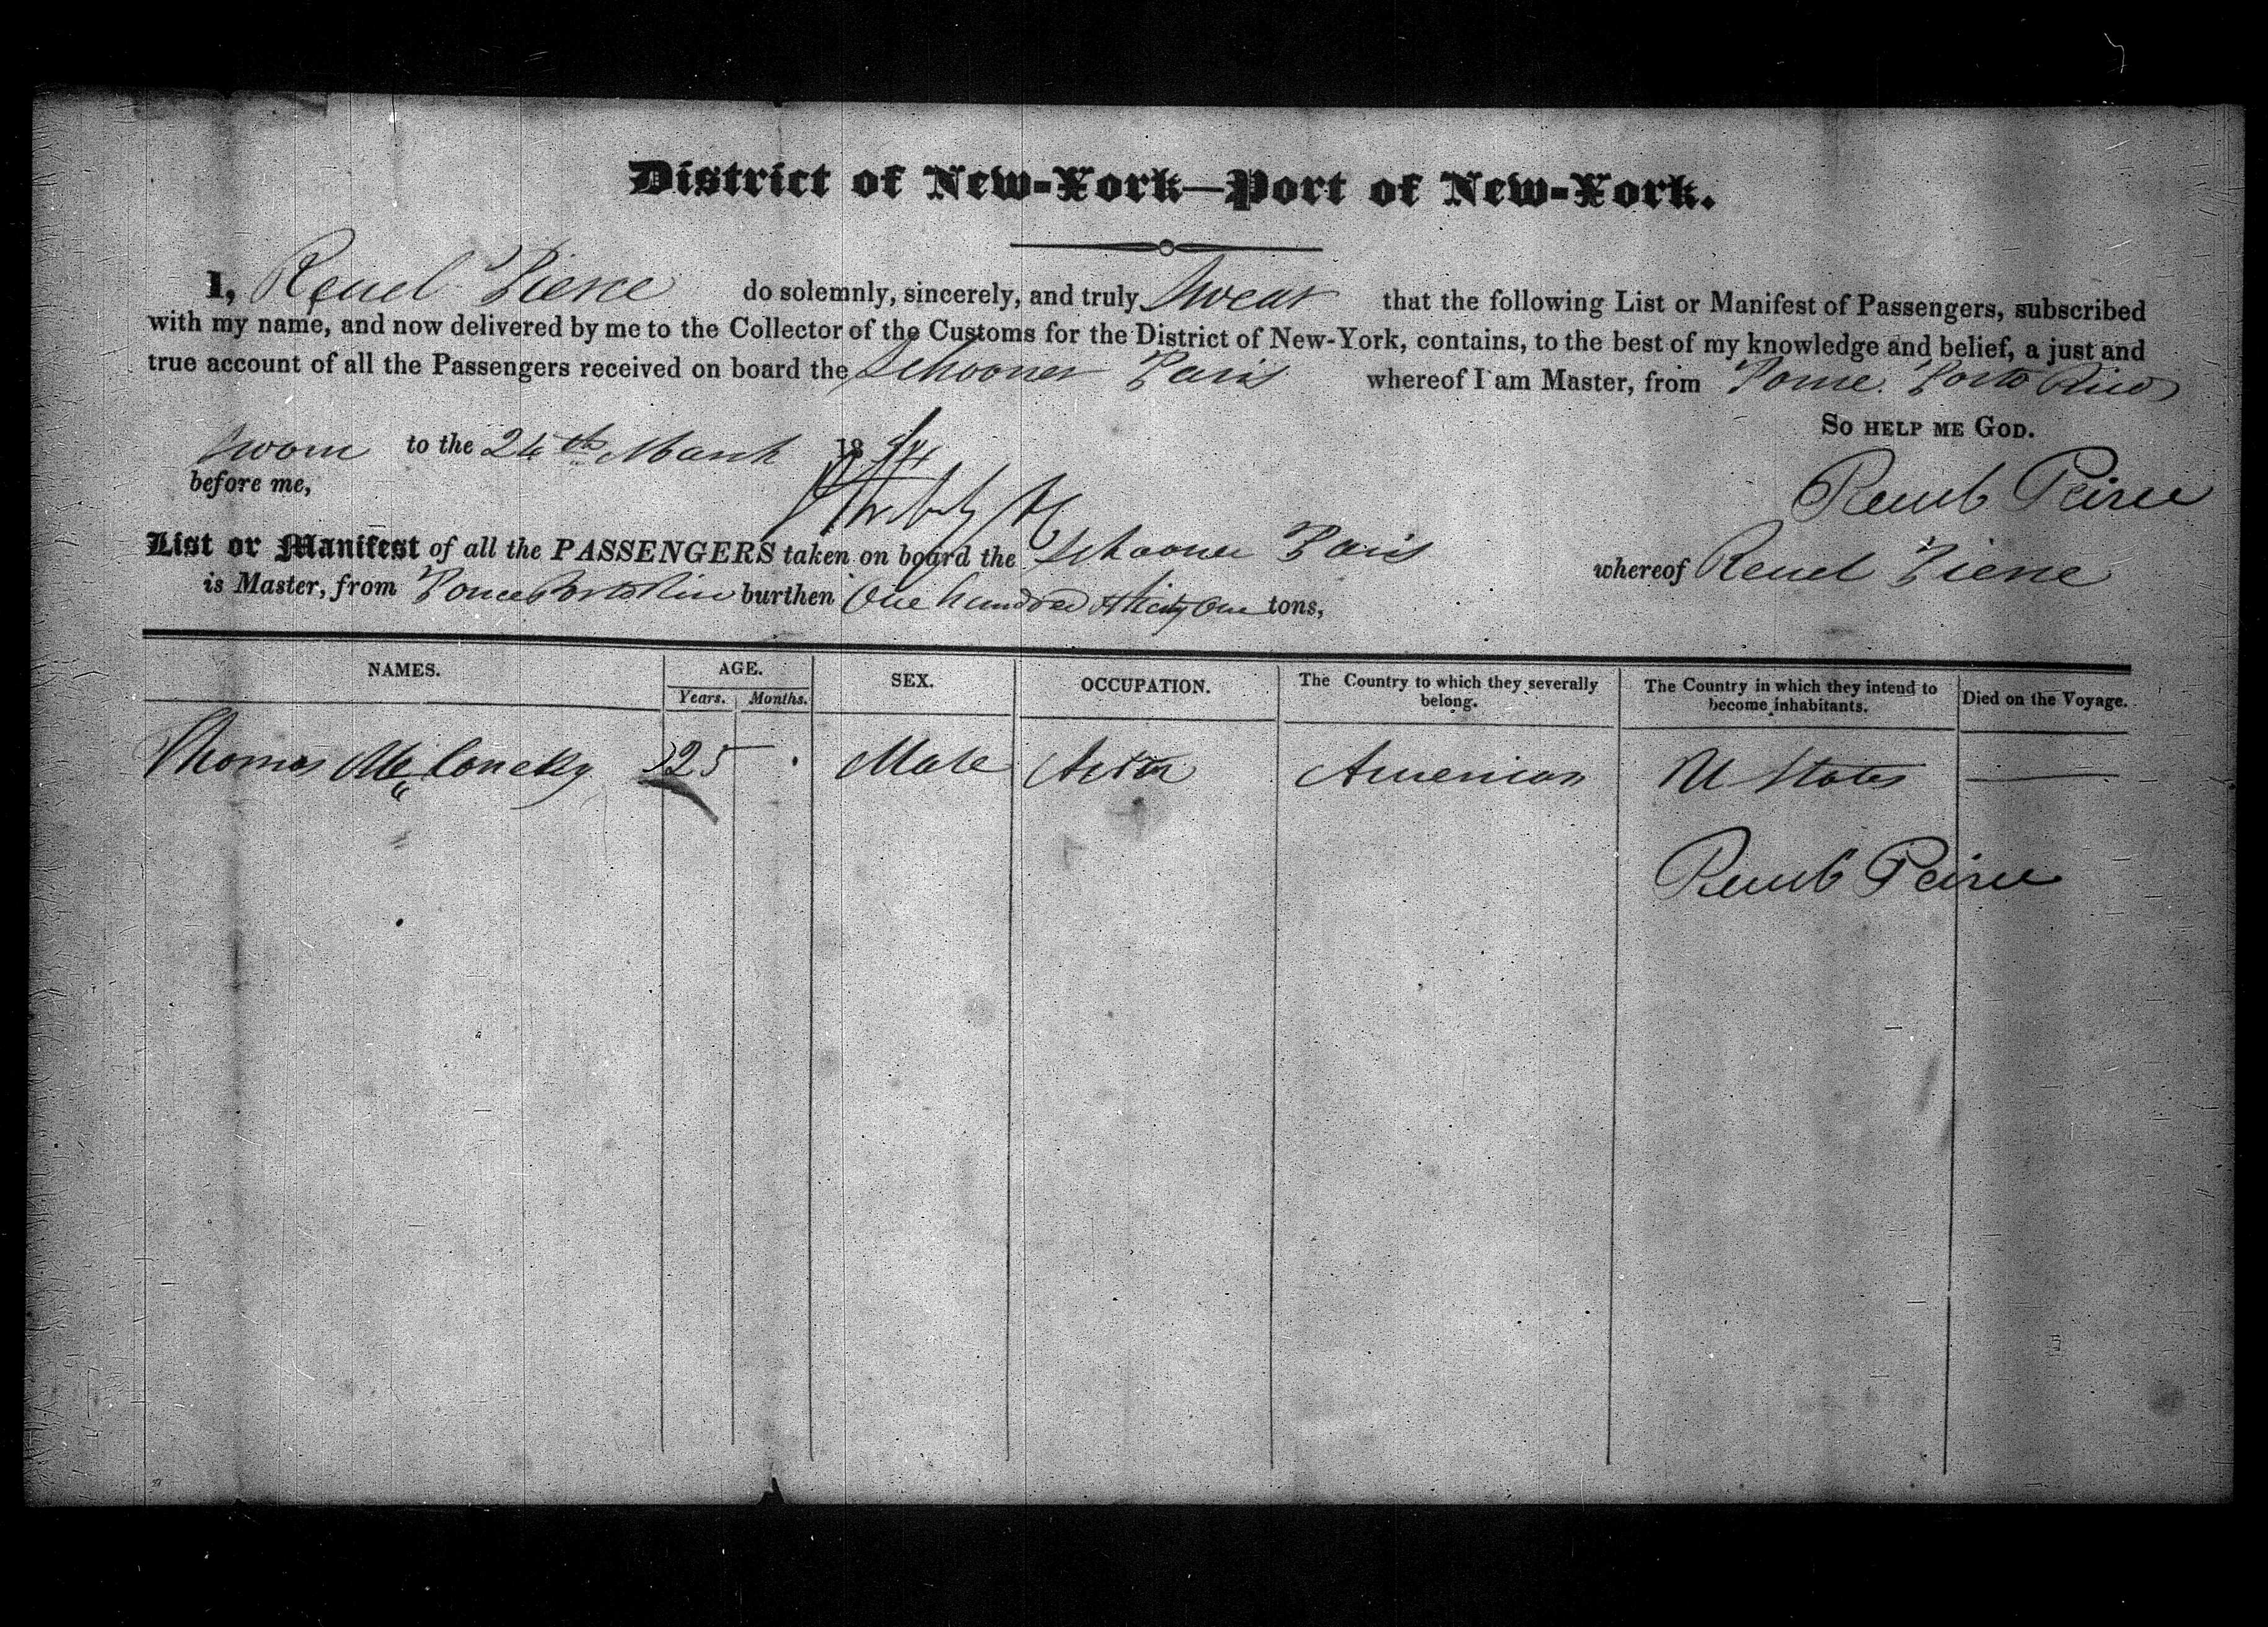 District of New-York—Port of New-York.
I, Reuel Pierce do solemnly, sincerely, and truly Swear that the following List or Manifest of Passengers, subscribed
with my name, and now delivered by me to the Collector of the Customs for the District of New-York, contains, to the best of my knowledge and belief, a just and
true account of all the Passengers received on board the Schooner Paris whereof I am Master, from Ponce Porto Rico
So help me God.
Sworn to the March 18
before me,
Peirce
List or Manifest of all the PASSENGERS taken on board the Schooner Paris whereof Reuel Pierce
is Master, from Ponce Porto Rico burthen One hundred & thirty One tons,
NAMES. AGE. SEX. OCCUPATION. The Country to which they severally belong. The Country in which they intend to become inhabitants. Died on the Voyage.
Years. Months.
Thomas 25 Male American U States
Peirce